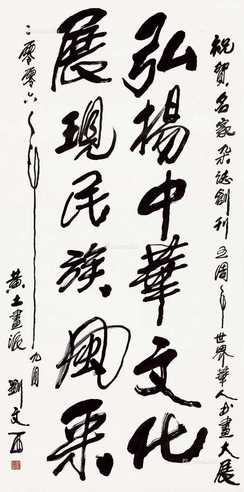 祝賀名家杂誌創刊五周年世界華人书畫大展
弘揚中華文化
展現民族風采
二零零六年九月
黄土畫派劉文西